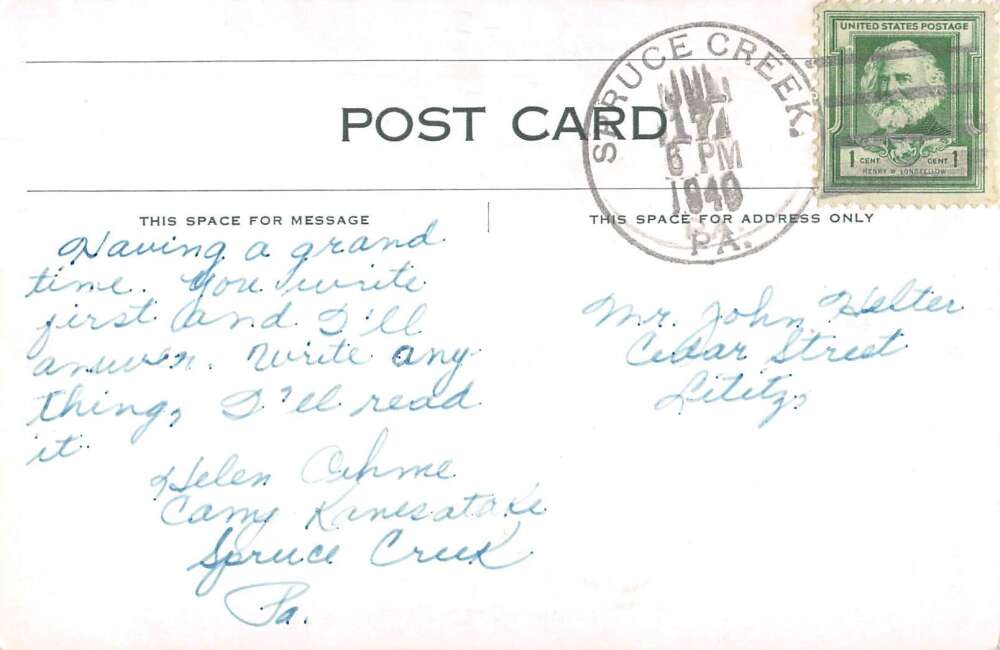 UNITED STATES POSTAGE
1 CENT CENT 1
HENRY W. LONGFELLOW
SPRUCE CREEK.
JUL
17
6 PM
1940
PA.
POST CARD
THIS SPACE FOR MESSAGE
THIS SPACE FOR ADDRESS ONLY
Having a grand
time. You write
first and I'll
answer. Write any
thing, I'll read
it.
Helen Oehme
Camp Kanesatake
Spruce Creek
Pa.
Mr. John Helter
Cedar Street
Lititz,